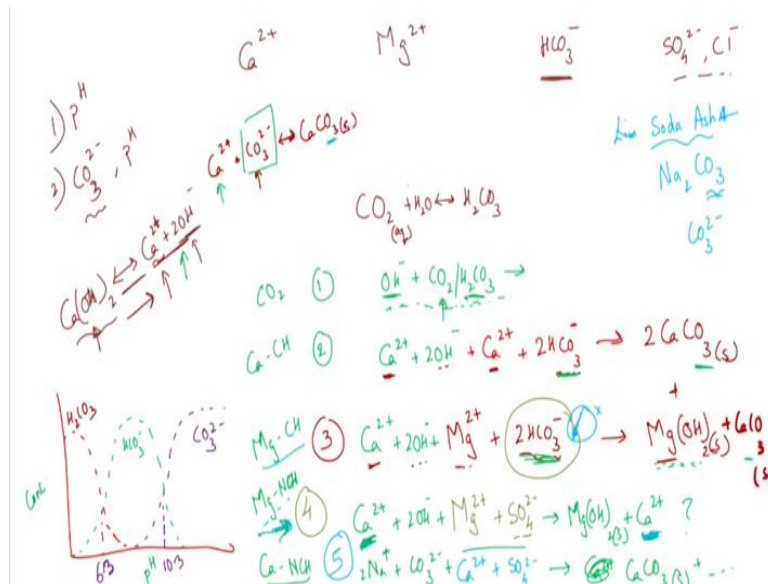 Ca²⁺ Mg²⁺ HCO₃⁻ SO₄²⁻, Cl⁻
1) pH
2) CO₃²⁻, pH
Ca²⁺ + CO₃²⁻ ↔ CaCO₃(s)
Soda Ash
Na₂CO₃
CO₃²⁻
Ca(OH)₂ ↔ Ca²⁺ + 2OH⁻
CO₂(aq) + H₂O ↔ H₂CO₃
CO₂ ① OH⁻ + CO₂/H₂CO₃ →
Ca-CH ② Ca²⁺ + 2OH⁻ + Ca²⁺ + 2HCO₃⁻ → 2CaCO₃(s)
+
Mg-CH ③ Ca²⁺ + 2OH⁻ + Mg²⁺ + 2HCO₃⁻ → Mg(OH)₂(s) + CaCO₃(s)
Mg-NCH ④ Ca²⁺ + 2OH⁻ + Mg²⁺ + SO₄²⁻ → Mg(OH)₂(s) + Ca²⁺ ?
Ca-NCH ⑤ 2Na⁺ + CO₃²⁻ + Ca²⁺ + SO₄²⁻ → CaCO₃(s) + ...
H₂CO₃ HCO₃⁻ CO₃²⁻
6.3 pH 10.3